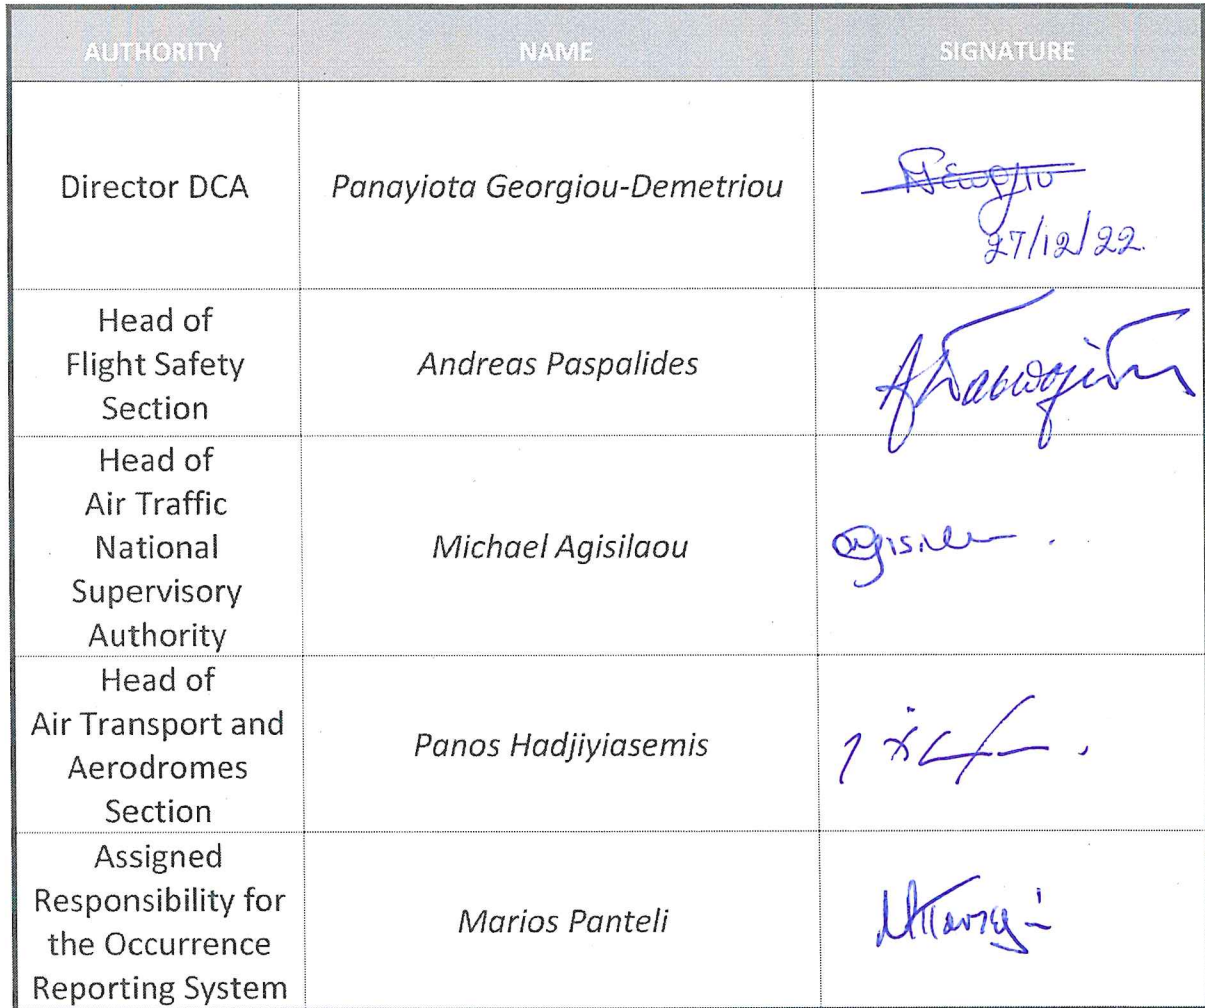 AUTHORITY NAME SIGNATURE
Director DCA
Panayiota Georgiou-Demetriou
27/12/22.
Head of
Flight Safety
Section
Andreas Paspalides
Head of
Air Traffic
National
Supervisory
Authority
Michael Agisilaou
Head of
Air Transport and
Aerodromes
Section
Panos Hadjiyiasemis
Assigned
Responsibility for
the Occurrence
Reporting System
Marios Panteli